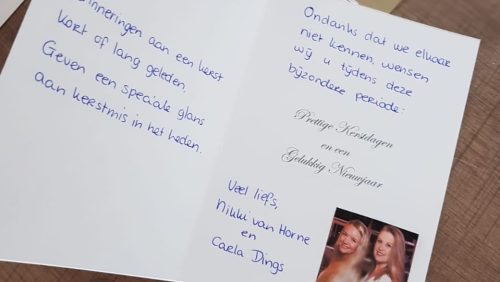 inneringen aan een kerst
kort of lang geleden.
Geven een speciale glans
aan kerstmis in het heden.
Ondanks dat we elkaar
niet kennen, wensen
wij u tijdens deze
bijzondere periode:
Prettige Kerstdagen
en een
Gelukkig Nieuwjaar
Veel liefs,
Nikki van Horne
en
Carla Dings